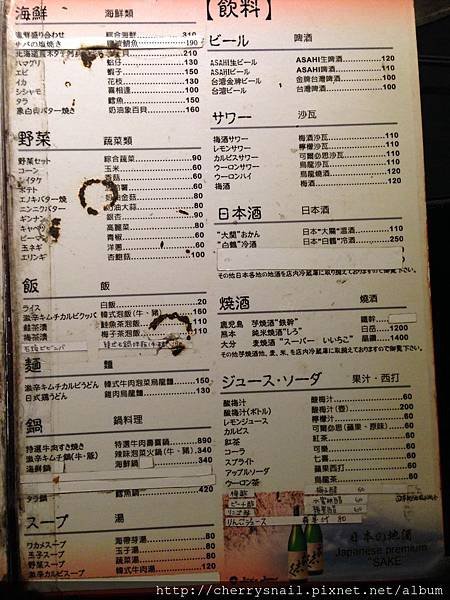 海鮮 海鮮類
海鮮盛り合わせ 綜合海鮮 310
サバの塩焼き 鯖魚 190
ハマグリ 蛤仔 130
エビ 蝦子 150
イカ 花枝 130
シシャモ 喜相逢 100
タラ 鱈魚 150
奶油象百貝 160
野菜 蔬菜類
野菜セット 綜合蔬菜 90
コーン 玉米 60
ポテト
エノキバター焼
ニンニクバター 奶油大蒜
銀杏 90
キャベツ 高麗菜 80
青椒 60
玉ネギ 洋蔥 60
エリンギ 杏鮑菇 60
飯 飯
ライス 白飯 20
激辛キムチカルビクッパ 韓式泡飯(牛、豬) 160
鮭茶漬 鮭魚茶泡飯
梅茶漬 梅子茶泡飯
麵 麵
激辛キムチカルビうどん 韓式牛肉泡菜烏龍麵 150
日式鶏うどん 雞肉烏龍麵 130
鍋 鍋料理
特選牛肉すき焼き 特選牛肉壽喜鍋 890
激辛キムチ鍋(牛・豚) 辣味泡菜火鍋(牛、豬) 340
海鮮鍋 海鮮鍋
タラ鍋 鱈魚鍋 420
スープ 湯
ワカメスープ 海帶芽湯 80
玉子スープ 玉子湯 80
野菜スープ 蔬菜湯 80
激辛カルビスープ 韓式牛肉湯 120
【飲料】
ビール 啤酒
ASAHI生ビール ASAHI生啤酒 120
ASAHIビール ASAHI啤酒 110
台湾金牌ビール 金牌台灣啤酒 100
台湾ビール 台灣啤酒 100
サワー 沙瓦
梅酒サワー 梅酒沙瓦 110
レモンサワー 檸檬沙瓦 110
カルピスサワー 可爾必思沙瓦 110
ウーロンサワー 烏龍沙瓦 110
ウーロンハイ 烏龍燒酒 120
梅酒 梅酒 120
日本酒 日本酒
"大関"おかん 日本"大關"溫酒 110
"白鶴"冷酒 日本"白鶴"冷酒 250
その他日本各地の地酒を店内冷蔵庫に取り揃えておりますのでご覧下さい。
焼酒 燒酒
鹿児島 芋焼酒"鉄幹" 鐵幹
熊本 純米焼酒"しろ" 白岳 1200
大分 麦焼酒"スーパー いいちこ" 1400
その他芋焼酒他、麦、米、を店内冷蔵庫に取揃えておりますのでご覧下さい。
ジュース・ソーダ 果汁・西打
酸梅汁 酸梅汁 60
酸梅汁(ボトル) 酸梅汁(壺) 200
レモンジュース 檸檬汁 60
カルピス 可爾必思(蘋果、原味) 60
紅茶 紅茶 60
コーラ 可樂 60
スプライト 七喜 60
アップルソーダ 蘋果西打 60
ウーロン茶 烏龍茶 60
りんごジュース 80
日本の地酒
Japanese premium
"SAKE"
http://cherrysnail.pixnet.net/album